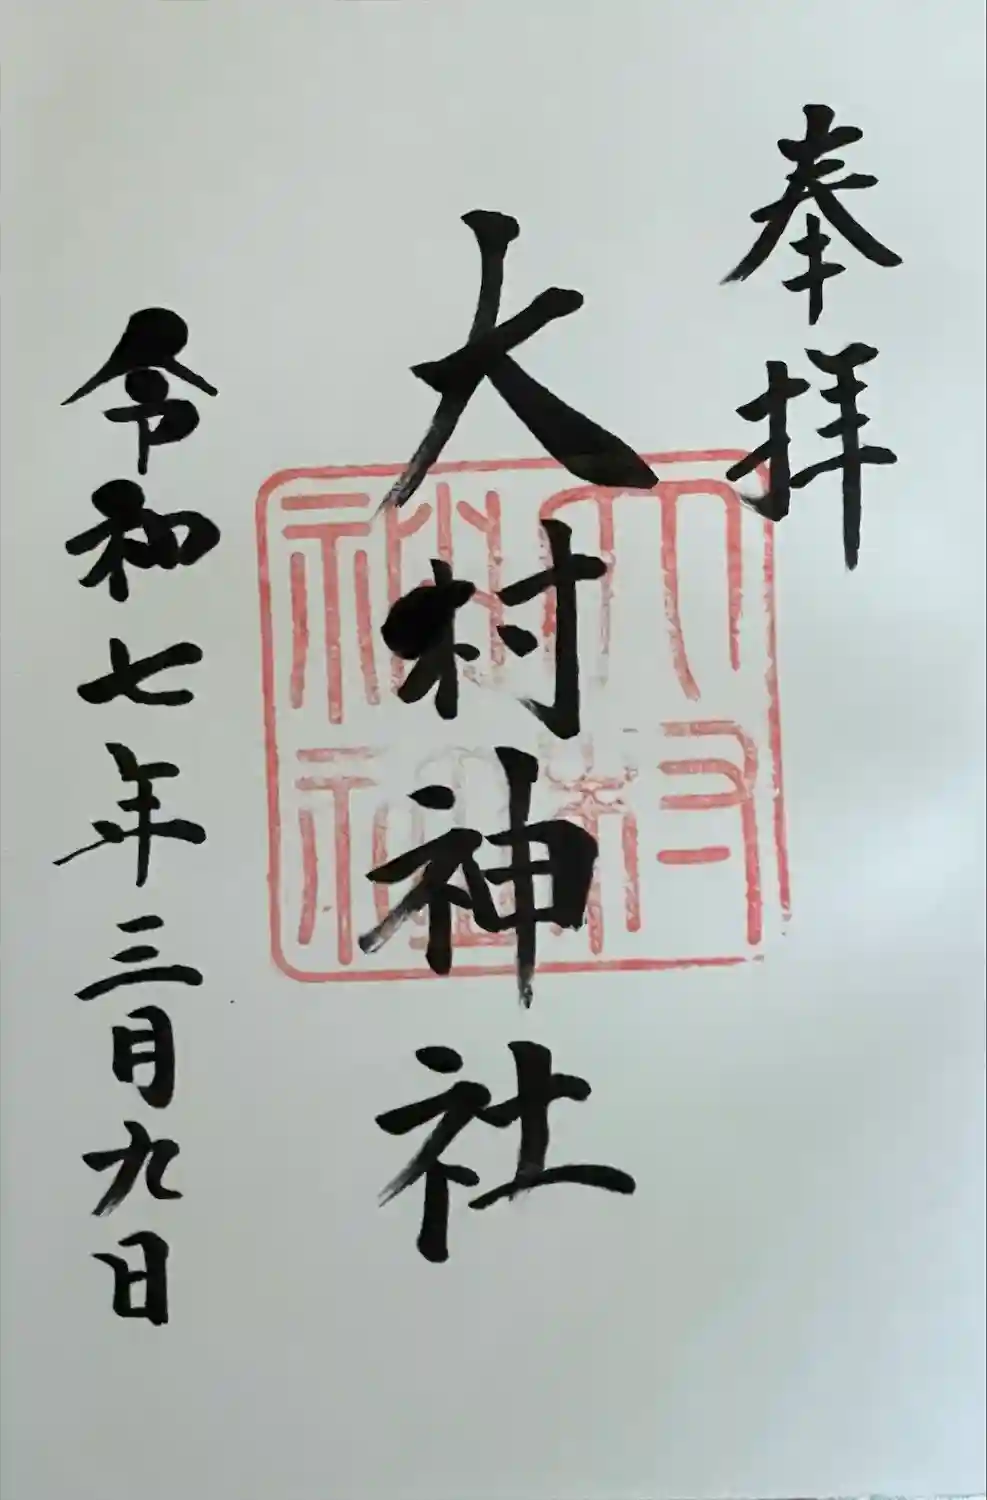 奉拝
大村神社
大村神社
令和七年三月九日